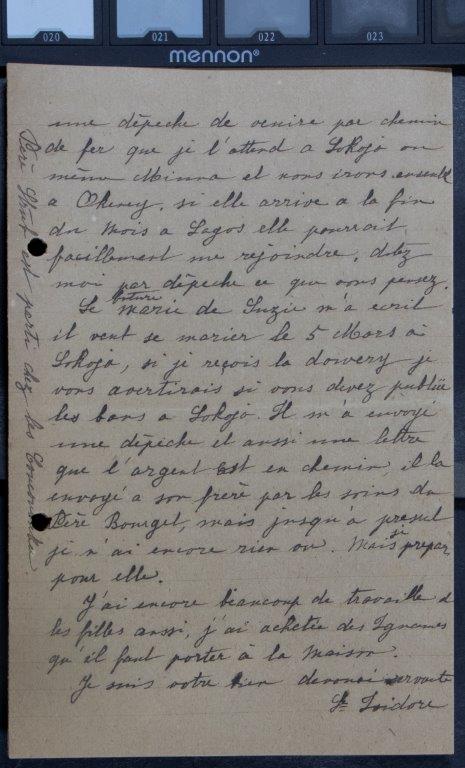 020 021 022 023
mennon®
une dépeche de venire par chemin
de fer que je l'attend a Lokoja ou
même Minna et nous irons ensemble
a Okeney, si elle arrive a la fin
du mois a Lagos elle pourrait
facillement me rejoindre, dites
moi par dépeche ce que vous pensez.
Le future marie de Suzie m'a ecrit
il veut se marier le 5 Mars à
Lokoja, si je reçois la dowery je
vous avertirais si vous devez publiée
les bans a Lokoja. Il m'a envoyé
une dépeche et aussi une lettre
que l'argent est en chemin, il la
envoyé a son frère par les soins du
Père Bourget, mais jusqu'à present
je n'ai encore rien vu. Mais je prepare
pour elle.
J'ai encore beaucoup de travaille et
les filles aussi, j'ai achetée des Ignames
qu'il faut porter à la maison.
Je suis votre bien devouai servante
Sr Isidore
Père Strub est parti chez les